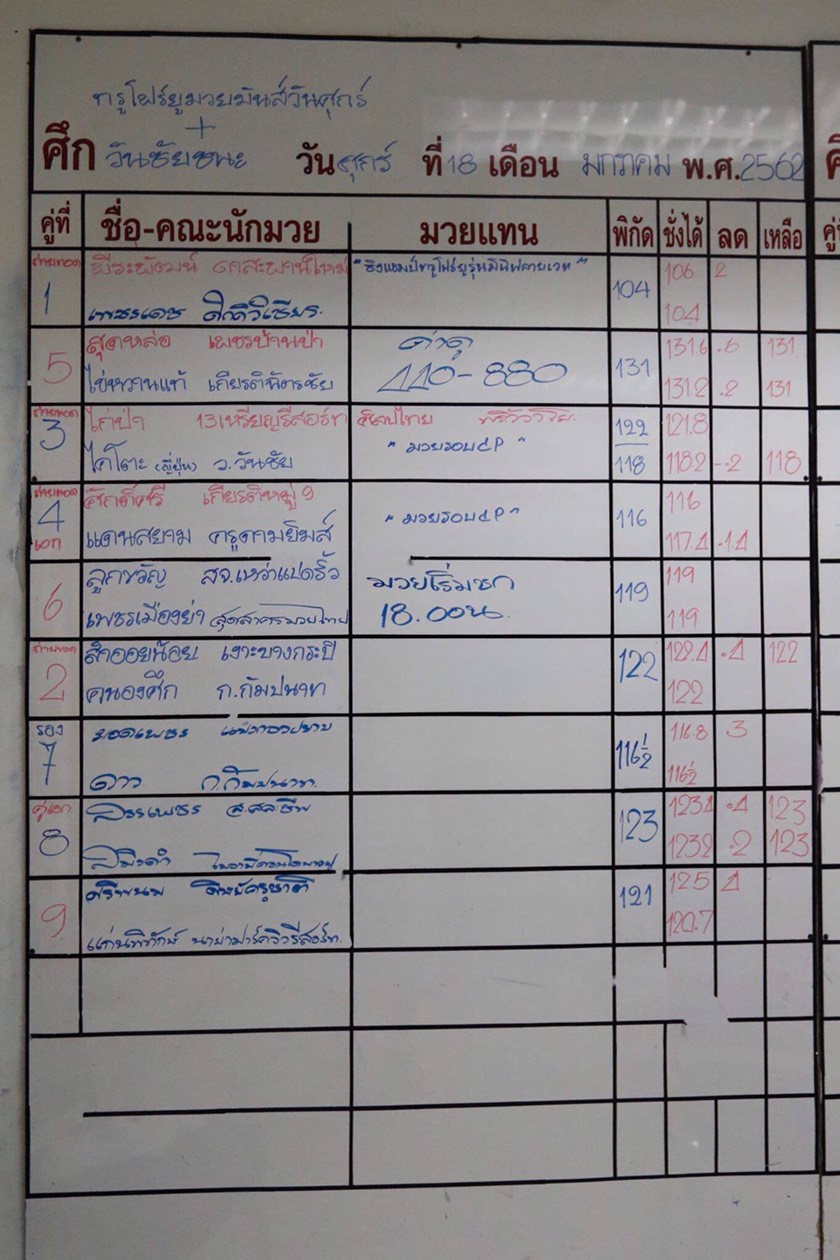 ทรูโฟร์ยูมวยมันส์วันศุกร์
+
ศึก วันชัยชนะ วัน ศุกร์ ที่ 18 เดือน มกราคม พ.ศ. 2562
คู่ที่ ชื่อ-คณะนักมวย มวยแทน พิกัด ชั่งได้ ลด เหลือ
ถ่ายทอด พีระพัฒน์ "ชิงแชมป์ทรูโฟร์ยูรุ่นมินิฟลายเวท" 106 2
1 เพชรเดช 104 104
สุดหล่อ เพชรบ้านป่า ค่าดู 131.6 .6 131
5 ไข่หวานแท้ เกียรติฉัตรชัย 440-880 131 131.2 .2 131
ถ่ายทอด ไก่ป่า 13เหรียญรีสอร์ท ศิลปไทย 122 121.8
3 ไคโตะ (ญี่ปุ่น) ว.วันชัย "มวยรอบ 4P" 118 118.2 -.2 118
ถ่ายทอด ศักดิ์ศรี เกียรติหมู่ 9 116
4 "มวยรอบ 4P" 116
เอก แดนสยาม ครูดามยิมส์ 117.4 -1.4
ลูกขวัญ สจ.เหว่าแปดริ้ว มวยเริ่มชก 119 119
6 เพชรเมืองย่า สุดสาครมวยไทย 18.00น. 119
ถ่ายทอด สำออยน้อย เงาะบางกระปิ 122 122.4 .4 122
2 คนองศึก ก.กัมปนาท 122
รอง ยอดเพชร 116.8 .3
7 ดาว ก.กัมปนาท 116½ 116½
คู่เอก สรรเพชร 123 123.4 .4 123
8 123.2 .2 123
ศรีพนม 121 125 4
9 แก่นพิทักษ์ 120.7